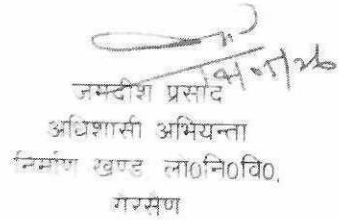 जगदीश प्रसाद
अधिशासी अभियन्ता
निर्माण खण्ड लो०नि०वि०,
गैरसैण